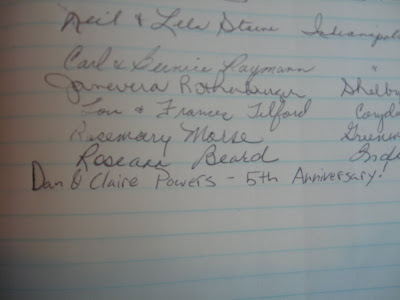 Neil & Lela Stam Indianapol
Carl & Bernice Laymann "
Janevera Rothenburger Shelby
Lou & Frances Tilford Corydo
Rosemary Morse Greenw
Roseann Beard Indi
Dan & Claire Powers - 5th Anniversary!